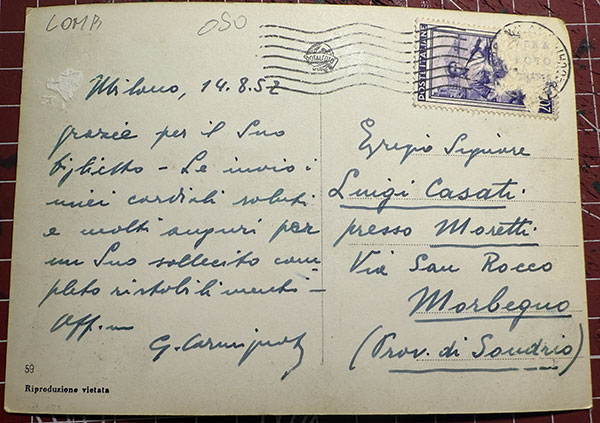 LOMB
OSO
POSTE ITALIANE
Milano, 14.8.52
grazie per il Suo
biglietto - Le invio i
miei cordiali saluti
e molti auguri per
un Suo sollecito com
pleto ristabilimento -
Aff.mo
G.
59
Riproduzione vietata
Egregio Signore
Luigi Casati
presso Moretti
Via San Rocco
Morbegno
(Prov. di Sondrio)